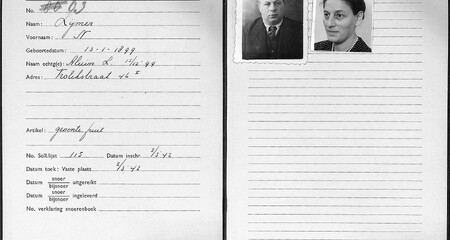 No. 63
Naam: Lymer
Voornaam: N
Geboortedatum: 13-1-1899
Naam echtg(e): Kleum L. 12/12 '99
Adres: Trolikstraat 46 I
Artikel: groente fruit
No. Soll.lijst 115 Datum inschr. 2/3 42
Datum toek: Vaste plaats 2/3 42
Datum snoer/bijsnoer uitgereikt
Datum snoer/bijsnoer ingeleverd
No. verklaring snoerenboek